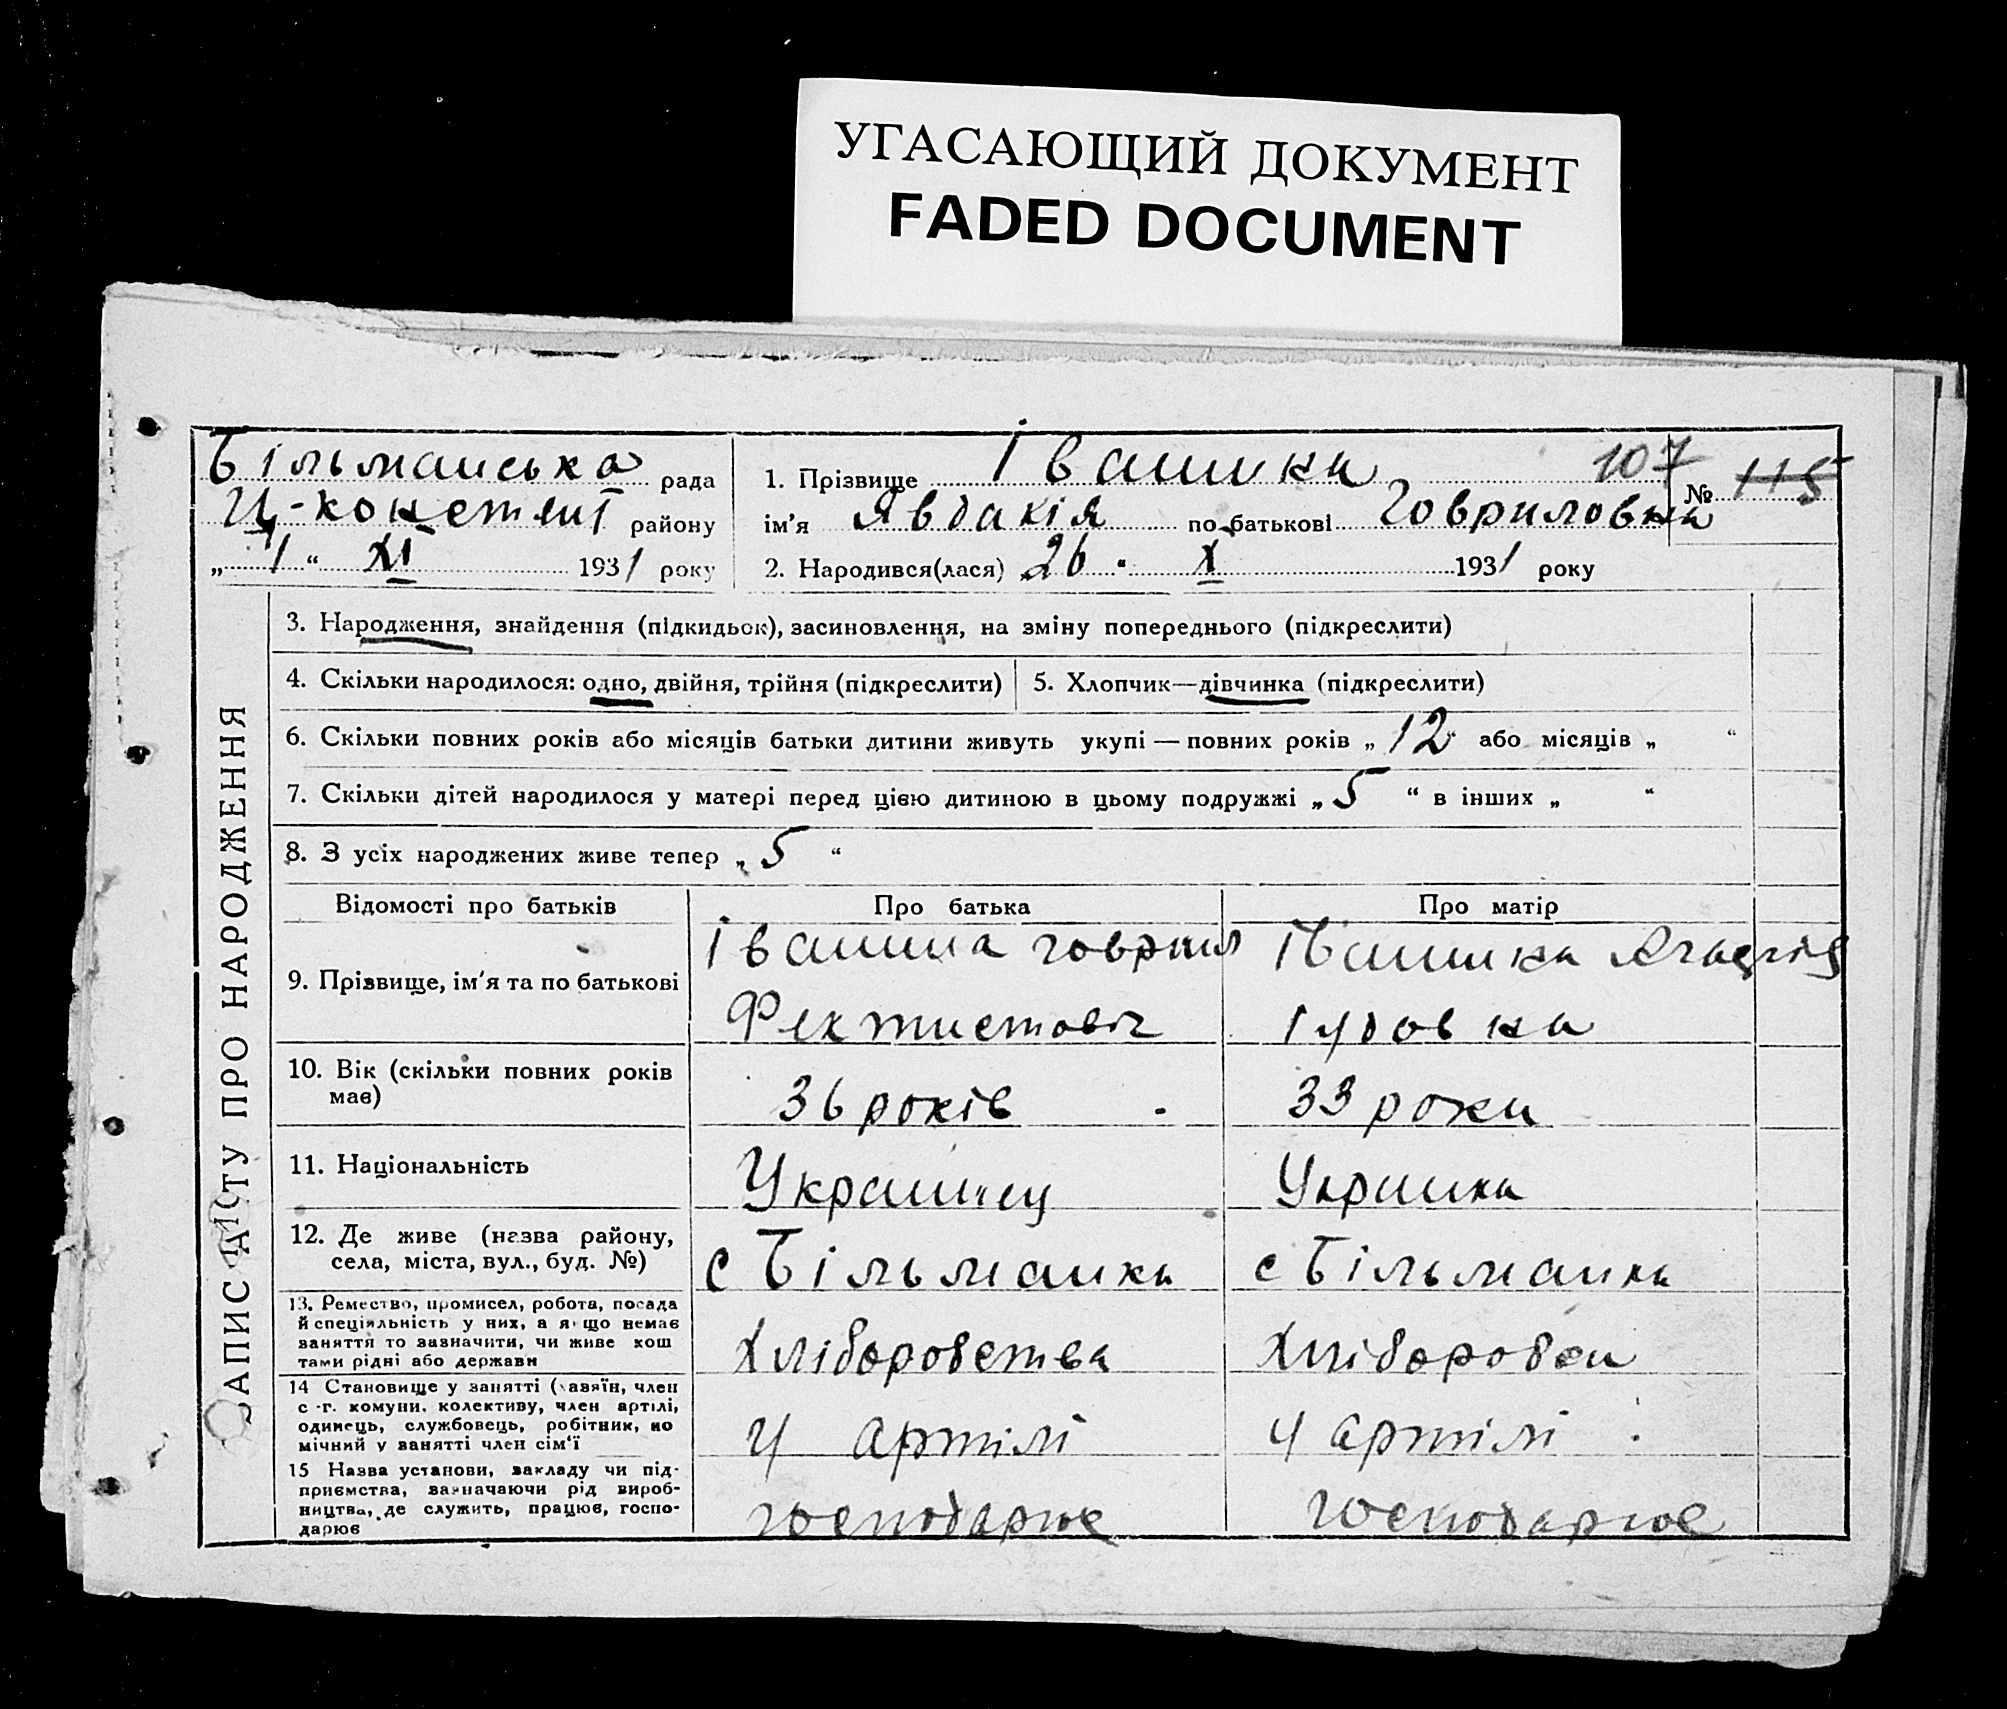 УГАСАЮЩИЙ ДОКУМЕНТ
FADED DOCUMENT
Більманська рада
Ц-констянт району
„ 1 “ XI 1931 року
1. Прізвище Івашина 107
№ 115
ім'я Явдакія по батькові Говриловна
2. Народився(лася) 26 “ X 1931 року
ЗАПИС АКТУ ПРО НАРОДЖЕННЯ
3. Народження, знайдення (підкидьок), засиновлення, на зміну попереднього (підкреслити)
4. Скільки народилося: одно, двійня, трійня (підкреслити) 5. Хлопчик—дівчинка (підкреслити)
6. Скільки повних років або місяців батьки дитини живуть укупі — повних років „ 12 або місяців „ “
7. Скільки дітей народилося у матері перед цією дитиною в цьому подружжі „ 5 “ в інших „ “
8. З усіх народжених живе тепер „ 5 “
Відомості про батьків Про батька Про матір
9. Прізвище, ім'я та по батькові
Івашина говрил
Фектистовіч
Івашина
10. Вік (скільки повних років
має)
36 років
33 роки
11. Національність
Украинец
Украинка
12. Де живе (назва району,
села, міста, вул., буд. №)
с Більманка
с Більманка
13. Ремество, промисел, робота, посада
й спеціяльність у них, а якщо немає
заняття то зазначити, чи живе кош
тами рідні або держави
Хліборобства
14 Становище у занятті (хазяїн, член
с-г. комуни, колективу, член артілі,
одинець, службовець, робітник, по
мічний у занятті член сім'ї
у артілі
у артілі
15 Назва установи, закладу чи під-
приємства, зазначаючи рід вироб-
ництва, де служить, працює, госпо-
дарює
господарює
господарює